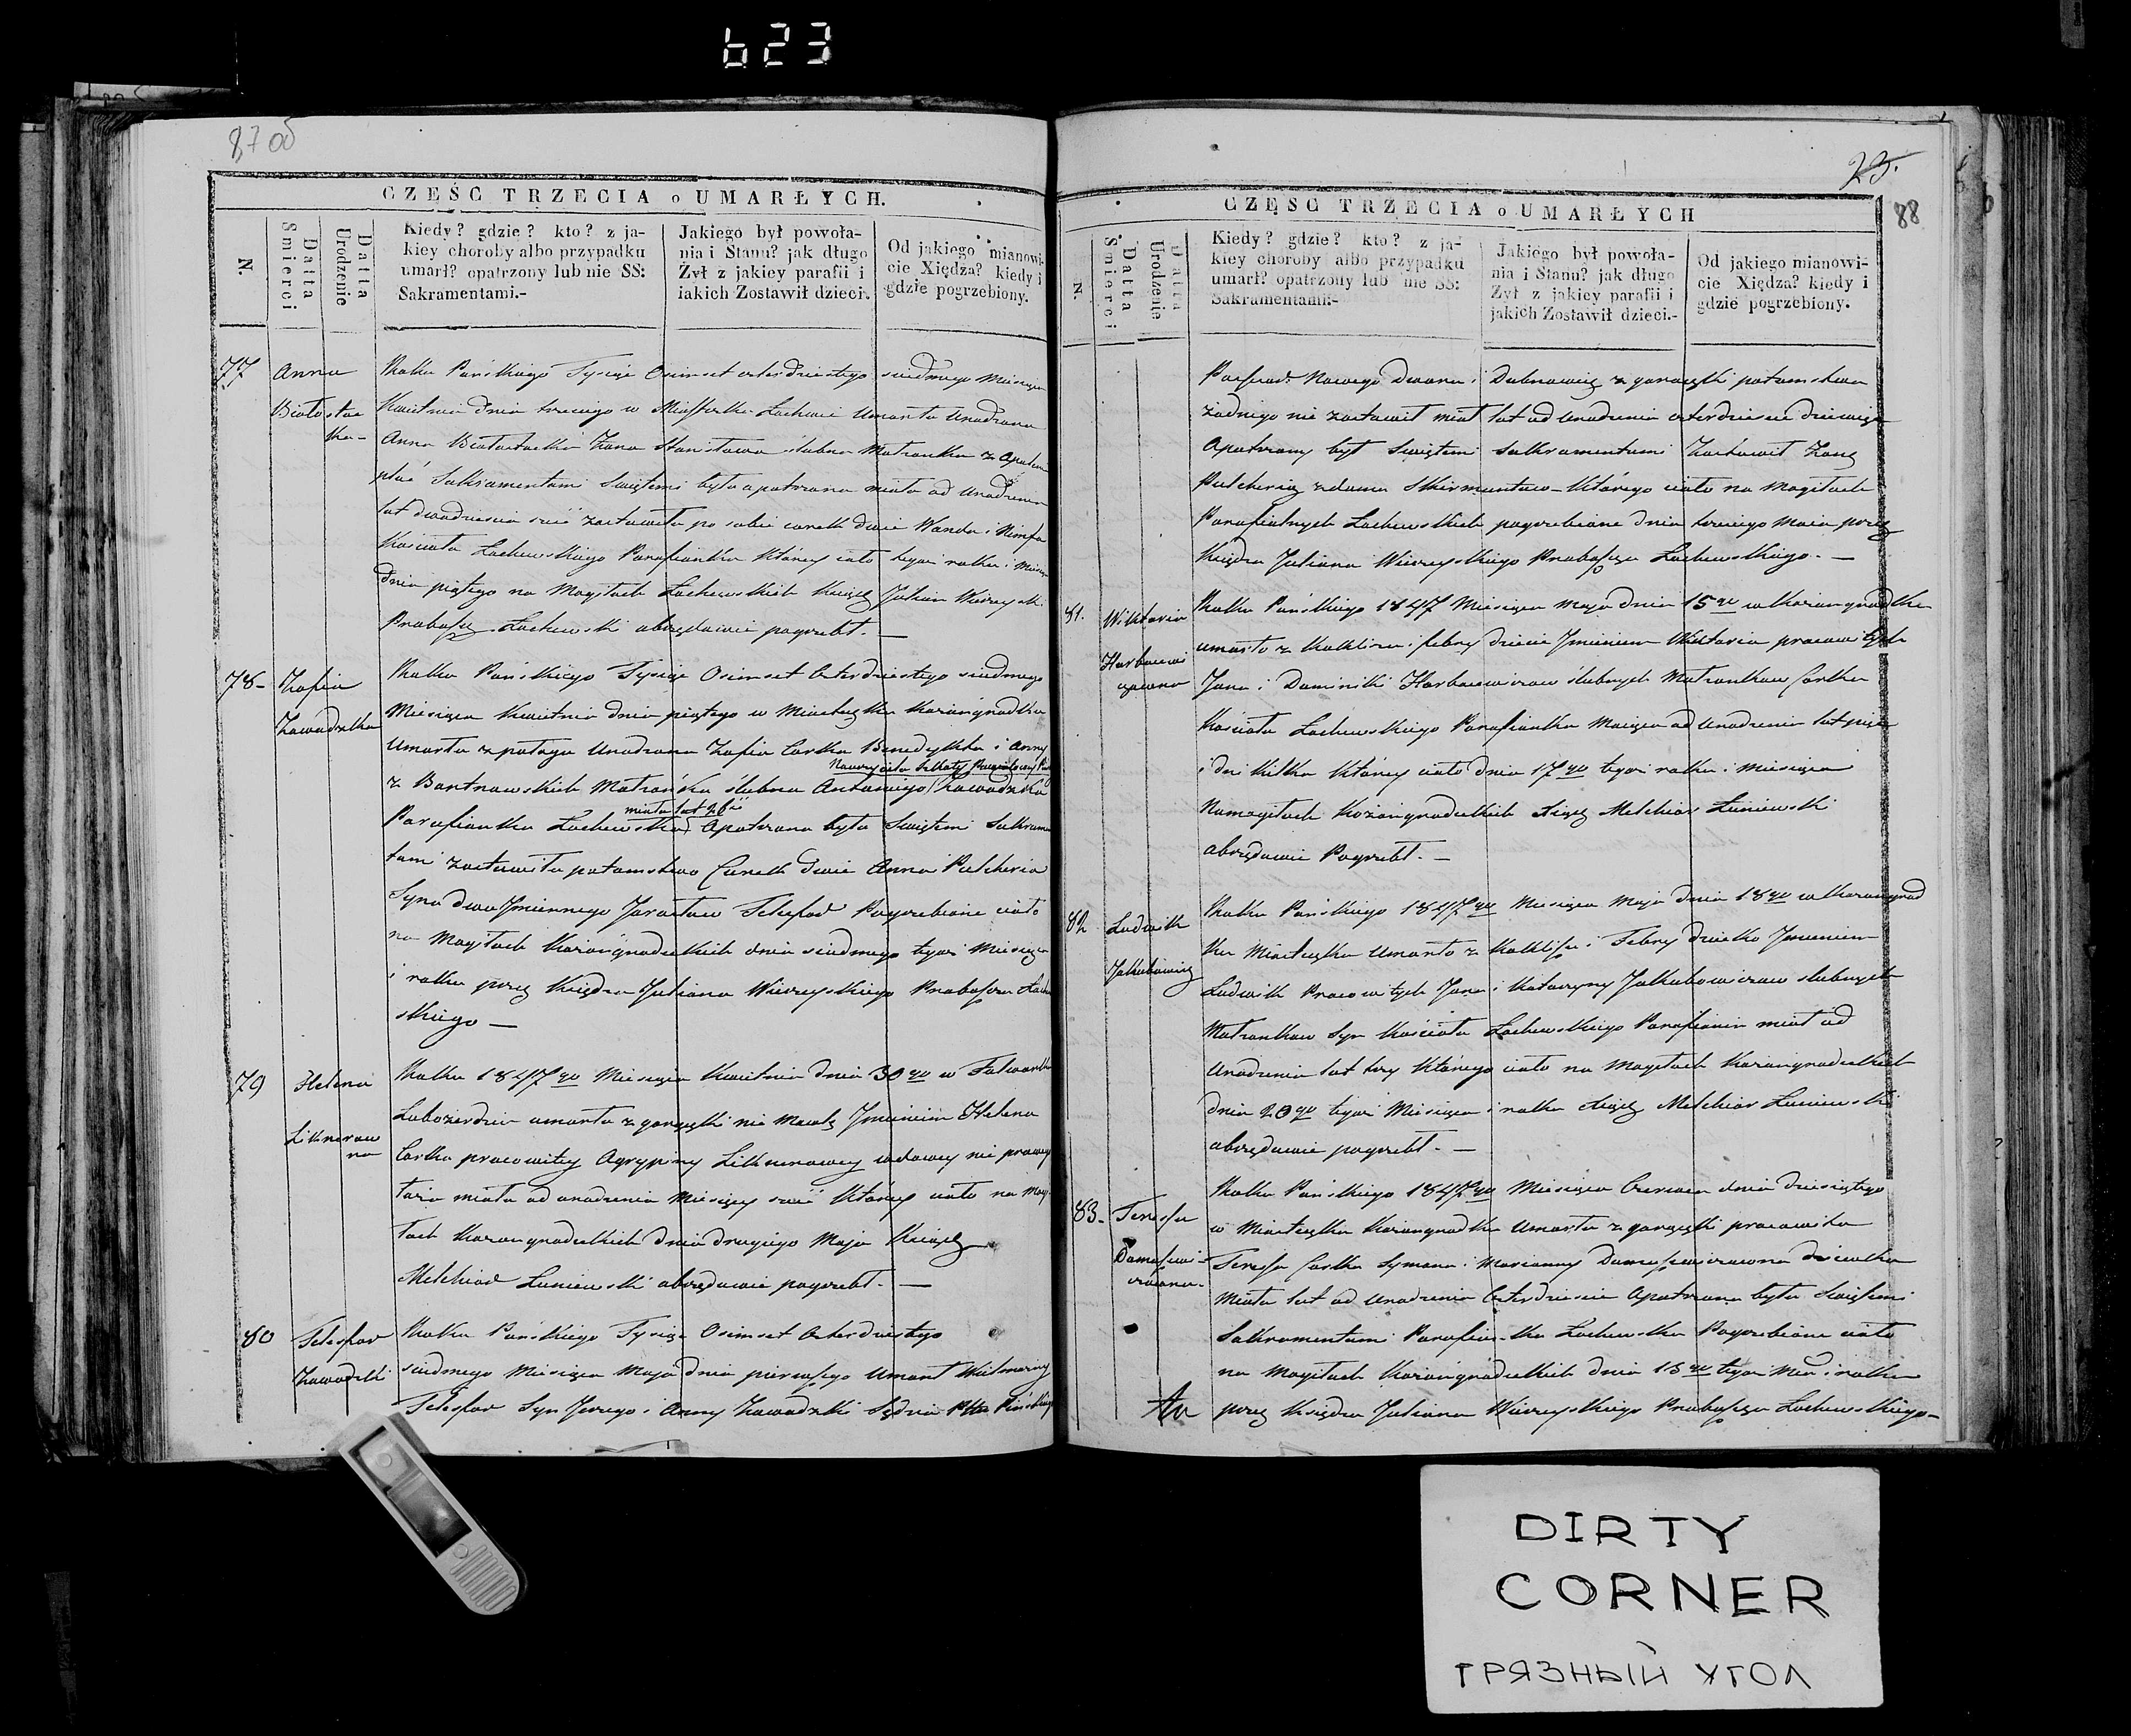 623
87 об
CZĘŚC TRZECIA o UMARŁYCH.
N
Datta Smierci
Datta Urodzenie
Kiedy? gdzie? kto? z ja-
kiey choroby albo przypadku
umarł? opatrzony lub nie SS:
Sakramentami.-
Jakiego był powoła-
nia i Stanu? jak długo
Żył z jakiey parafii i
iakich Zostawił dzieci.
Od jakiego mianowi-
cie Xiędza? kiedy i
gdzie pogrzebiony.
77 Anna Białostocka
Roku Pańskiego Tysiąc Osimset czterdziestego siudmego Miesiąca
Kwietnia dnia trzeciego w Miasteczku Łachwie Umarła Urodzona
Anna Białostocka Żona Stanisława ślubna Małżonka z Apo
plex Sakramentami Swiętemi była opatrzona miała od Urodzenia
lat dwadziescia sześć zostawiła po sobie corek dwie Wanda i Nimfa
Kościoła Łachewskiego Parafianka Którey ciało tegoż roku i Miesiąca
dnia piątego na Mogiłach Łachewskich Ksiądz Julian Wierzyski
Proboszcz Łachewski obrzędowie pogrzebł. —
78- Zofia Zawadzka
Roku Pańskiego Tysiąc Osimset Czterdziestego siudmego
Miesiąca Kwietnia dnia piątego w Miasteczku Kożangrodku
Umarła z połogu Urodzona Zofia Corka Benedykta i Anny
z Bontnowskich Małżonka ślubna Antoniego Zawadzka
miała lat 26
Parafianka Łachewska Opatrzona była Swiętemi Sakramen
tami zostawiła potomstwo Corek dwie Anna i Pulcheria
Syna dwuImiennego Jarosław Telesfor Pogrzebione ciało
na Mogiłach Kożangrodeckich dnia siudmego tegoż Miesiąca
i roku przez Księdza Juliana Wierzyskiego Proboszcza Łachew
skiego —
79 Helena Liknerowna
Roku 1847go Miesiąca Kwietnia dnia 30go w Falwarku
umarła z gorączki nie Mowlę Jmieniem Helena
Corka pracowitey Agrypiny Liknerowey wdowey nie prawego
łoża miała od urodzenia Miesięcy sześć Którey ciało na Mogi
łach Kożangrodeckich dnia drugiego Maja Ksiądz
Melchior Łuniewski obrzędowie pogrzebł. —
80 Telesfor Zawadzki
Roku Pańskiego Tysiąc Osimset Czterdziestego
siudmego Miesiąca Maja dnia pierwszego Umarł Wielmożny
Telesfor Syn Jerzego i Anny Zawadzki Sędzia Ptu Pińskiego
23.
88
CZĘSC TRZECIA o UMARŁYCH
N.
Datta Smierci
Datta Urodzenie
Kiedy? gdzie? kto? z ja-
kiey choroby albo przypadku
umarł? opatrzony lub nie SS:
Sakramentami:-
Jakiego był powoła-
nia i Stanu? jak długo
Żył z jakiey parafii i
jakich Zostawił dzieci.-
Od jakiego mianowi-
cie Xiędza? kiedy i
gdzie pogrzebiony.
Nowego Dworu i Dubnowicz z gorączki potomstwa
żadnego nie zostawił miał lat od Urodzenia czterdziescie dziewięć
Opatrzony był Swiętemi Sakramentami Zostawił Żonę
Pulcherią z domu Skirmuntow — Którego ciało na Mogiłach
Parafialnych Łachewskich pogrzebione dnia trzeciego Maia przez
Księdza Juliana Wierzyskiego Proboszcza Łachewskiego. —
81. Wiktoria Horbacewiczowna
Roku Pańskiego 1847 Miesiąca Maja dnia 15go w Kożangrodku
umarło z Kokliszu i febry dziecie Jmieniem Wiktoria pracowitych
Jana i Dominiki Horbacewiczow ślubnych Małżonkow Corka
Kościoła Łachewskiego Parafianka Maiąca od Urodzenia lat pięć
i dni kilka Którey ciało dnia 17go tegoż roku i Miesiąca
Na mogiłach Kożangrodeckich Xiądz Melchior Łuniewski
obrzędowie Pogrzebł. —
82 Ludwik Jakubowicz
Roku Pańskiego 1847go Miesiąca Maja dnia 18go w Kożangrod
ku Miasteczku Umarło z Kokliszu i Febry dziecko Jmieniem
Ludwik Pracowitych Jana i Katarzyny Jakubowiczow slubnych
Małżonkow Syn Kościoła Łachewskiego Parafianin miał od
Urodzenia lat trzy Którego ciało na Mogiłach Kożangrodeckich
dnia 20go tegoż Miesiąca i roku Xiądz Melchior Łuniewski
obrzędowie pogrzebł. —
83- Teressa Damaszewiczowna
Roku Pańskiego 1847go Miesiąca Czerwca dnia dziesiątego
w Miasteczku Kożangrodku Umarła z gorączki pracowita
Teressa Corka Symona i Marianny Damaszewiczowna dziewka
Miała lat od Urodzenia Czterdziescie Opatrzona była Swiętemi
Sakramentami Parafianka Łachewska Pogrzebione ciało
na Mogiłach Kożangrodeckich dnia 13go tegoż Mca i roku
przez Księdza Juliana Wierzyskiego Proboszcza Łachewskiego —
DIRTY
CORNER
ГРЯЗНЫЙ УГОЛ